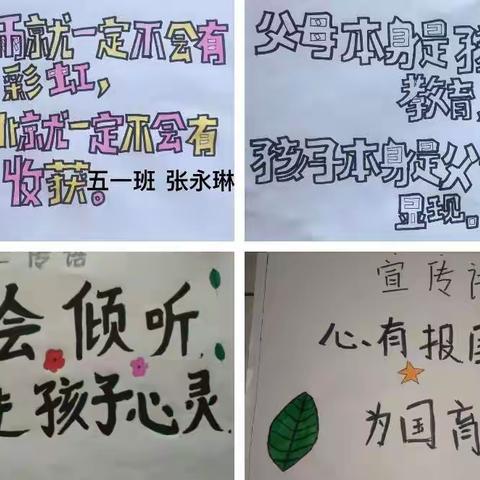 雨就一定不会有
彩虹，
就一定不会有
收获。
五一班 张永琳
父母本身是孩
教育，
孩子本身是父
显现。
传语
会倾听，
孩子心灵．
宣传语
心有报国
为国育